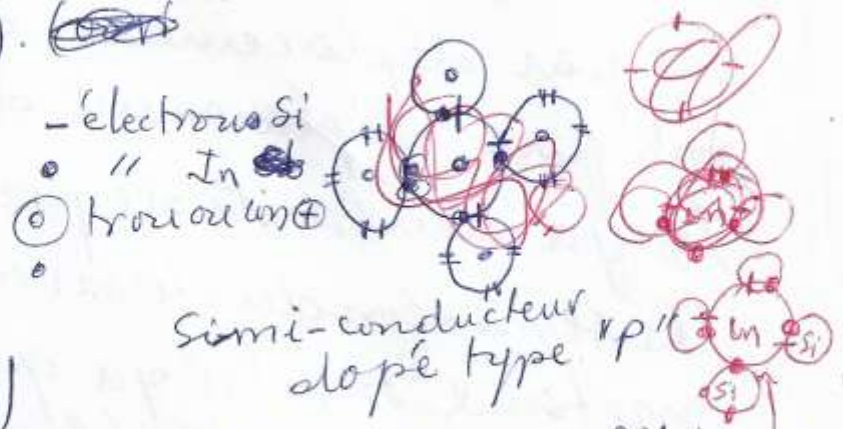 - électrons Si
• " In
trou ou ion ⊕
Simi-conducteur "p"
dopé type
In
In Si
Si